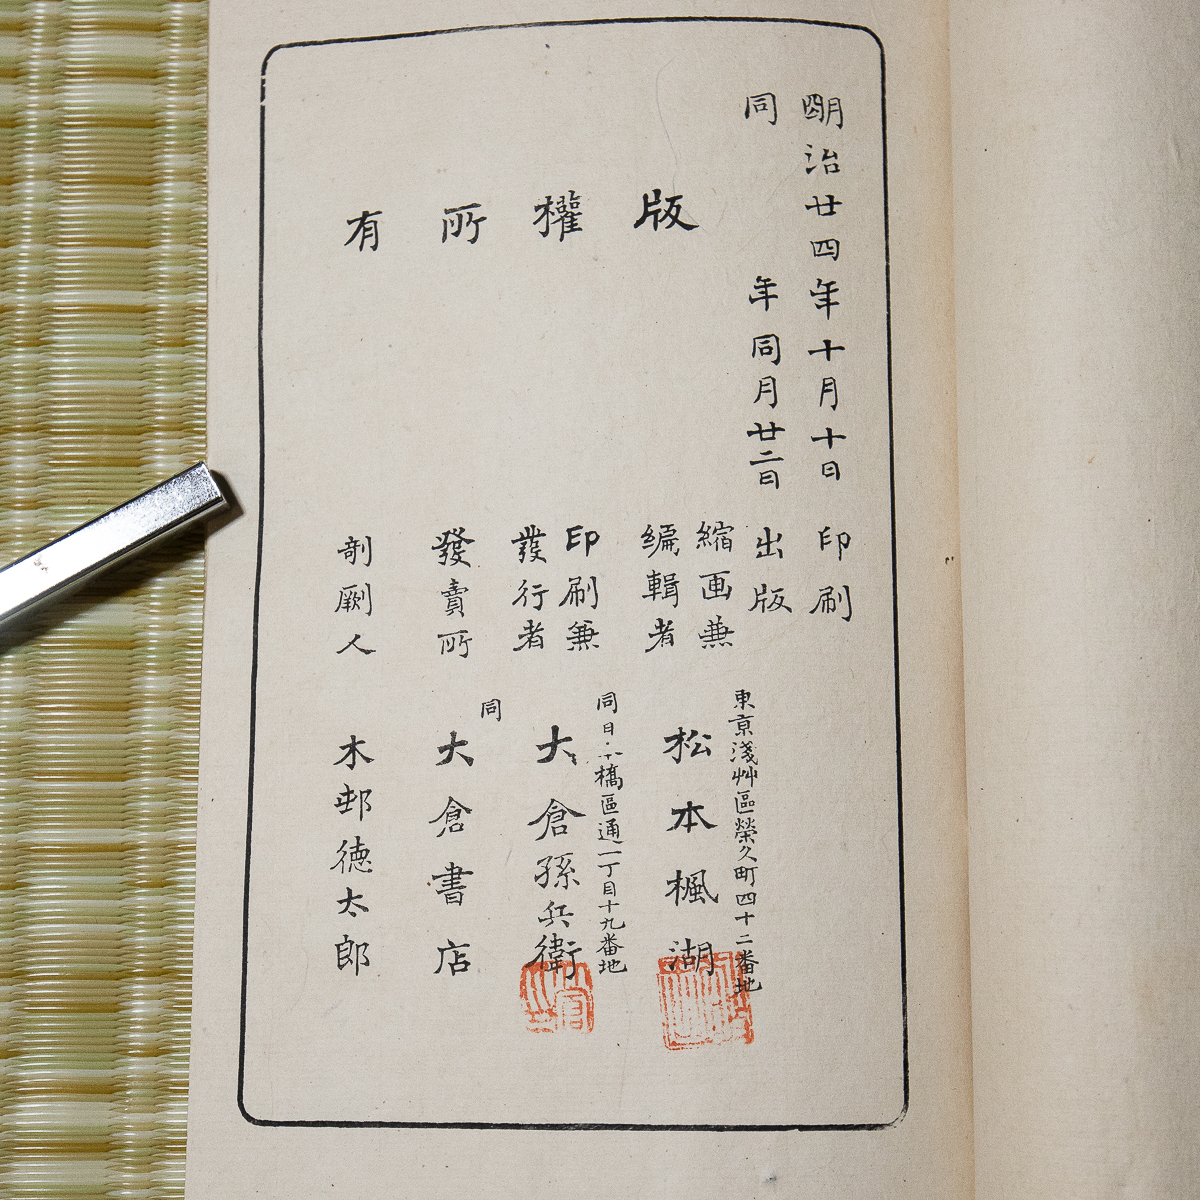 明治廿四年十月十日印刷
同年同月廿二日出版
版權所有
東京淺艸區榮久町四十二番地
縮画兼
編輯者
松本楓湖
同日本橋區通一丁目十九番地
印刷兼
發行者
大倉孫兵衛
同
發賣所
大倉書店
剞劂人
木邨徳太郎